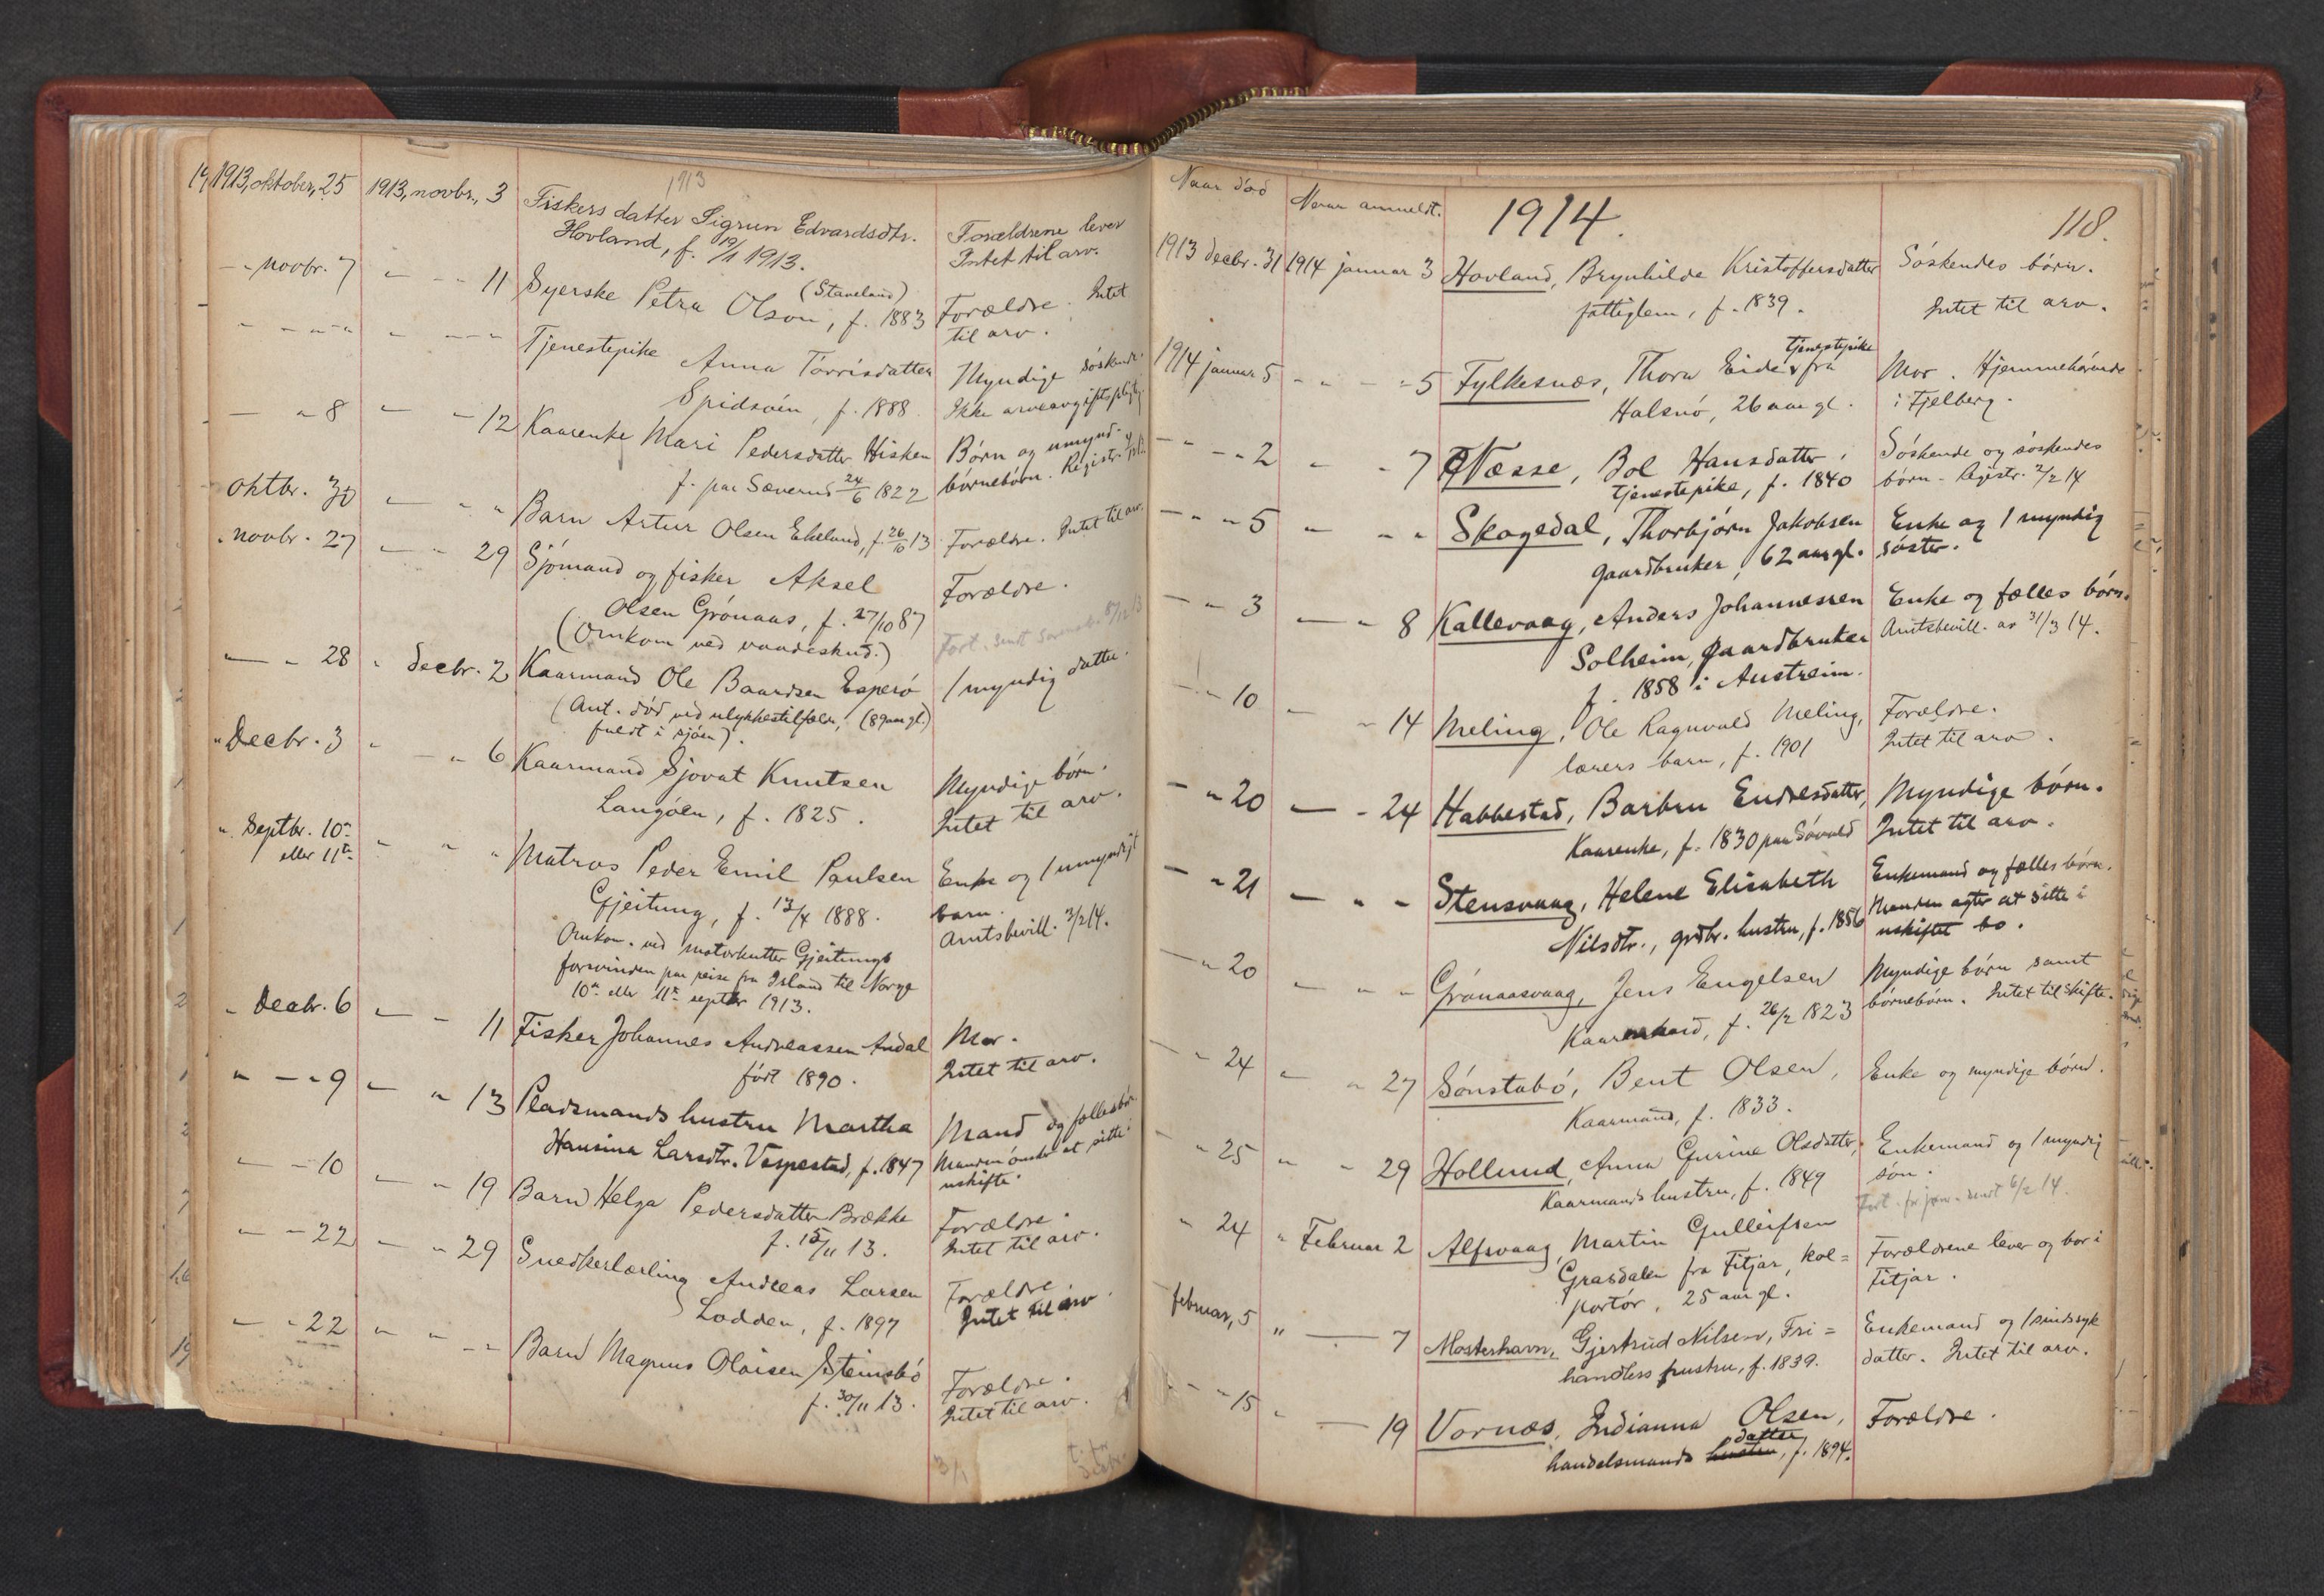 1913
1913, oktober, 25 1913, novbr., 3 Fiskers datter Sigrun Edvardsdtr. Forældrene lever
Hovland, f. 19/1 1913. Intet til arv.
— " Novbr. 7 " — " 11 Syerske Petra Olson, (Staveland) f. 1883 Forældre. Intet
til arv.
Tjenestepike Anna Tørrisdatter Myndige søskende.
Spidsøen, f. 1888 Ikke arveavgiftspligtig
— " 8 — " 12 Kaarenke Mari Pedersdatter Hisken Børn og umynd.
f. paa Sæverud 24/6 1822 børnebørn. Registr.
Oktbr. 30 — " " Barn Artur Olsen Ekelund, f. 26/10 13 Forældre. Intet til arv.
" Novbr. 27 — " 29 Sjømand og fisker Aksel Forældre.
Olsen Grønaas, f. 27/10 87
(Omkom ved vaadeskud.)
— " 28 " Decbr. 2 Kaarmand Ole Baardsen Esperø 1 myndig datter.
(Ant. død ved ulykkestilfælde, (89 aar gl.)
faldt i sjøen).
" Decbr. 3 " — " 6 Kaarmand Sjovat Knutsen Myndige børn.
Langøen, f. 1825. Intet til arv.
" Septbr. 10de
eller 11te " " " Matros Peder Emil Paulsen Enke og 1 umyndigt
Gjeitung, f. 13/4 1888. barn.
Omkom. ved motorkutter Gjeitungs Amtsbevill. 3/2 14.
forsvinden paa reise fra Island til Norge
10de eller 11te septbr 1913.
" Decbr. 6 — " 11 Fisker Johannes Andreassen Andal Mor.
født 1890. Intet til arv.
" — " 9 — " 13 Pladsmands hustru Martha Mand og fællesbørn.
Hansina Larsdtr. Vespestad, f. 1847 Manden ønsker at sitte i
uskifte.
— " 10 — " 19 Barn Helga Pedersdatter Brække Forældre.
f. 15/11 13. Intet til arv.
— " 22 — " 29 Snedkerlærling Andreas Larsen Forældre.
Lodden, f. 1897 Intet til arv.
— " 22 " " — " Barn Magnus Olaisen Steinsbø Forældre.
f. 30/11 13. Intet til arv.
3/1
Naar død Naar anmeldt. 1914. 118.
1913 decbr. 31 1914 januar 3 Hovland, Brynhilde Kristoffersdatter Søskendes børn.
fattiglem, f. 1839. Intet til arv.
1914 januar 5 — " — " 5 Fylkesnes, Thora Eide, tjenestepike fra Mor. Hjemmehørende
Halsnø, 26 aar gl. i Fjelberg.
— " — " 2 — " 7 Næsse, Bol Hansdatter, Søskende og søskendes
tjenestepike, f. 1840 børn. Registr. 2/2 14
— " — " 5 — " — " Skogedal, Thorbjørn Jakobsen Enke og 1 myndig
gaardbruker, 62 aar gl. søster.
— " 3 — " 8 Kallevaag, Anders Johannessen Enke og fælles børn.
Solheim, gaardbruker Amtsbevill. av 31/3 14.
f. 1858 i Austreim.
— " 10 — " 14 Meling, Ole Ragnvald Meling, Forældre.
lærers barn, f. 1901 Intet til arv.
— " 20 — " 24 Habbestad, Barbru Endresdatter, Myndige børn.
Kaarenke, f. 1830 paa Søvold Intet til arv.
— " 21 — " " Stensvaag, Helene Elisabeth Enkemand og fælles børn.
Nilsdtr., grdbr. hustru, f. 1856 Manden agter at sitte i
uskiftet bo.
— " 20 — " " Grønaasvaag, Jens Engelsen Myndige børn samt
Kaarmand, f. 26/2 1823 børnebørn. Intet til skifte.
— " 24 " — " 27 Sønstabø, Bent Olsen, Enke og myndige børn.
Kaarmand, f. 1833.
— " 25 " — " 29 Hollund, Anna Gurine Olsdatter, Enkemand og 1 myndig
Kaarmands hustru, f. 1849 søn.
" 24 " Februar 2 Alfsvaag, Martin Gulleifsen
Grasdalen fra Fitjar, kol= Forældrene lever og bor i
portør, 25 aar gl. Fitjar.
februar, 5 " — 7 Mosterhavn, Gjertrud Nilsen, Fri= Enkemand og 1 sindssyk
handlers hustru, f. 1839. datter. Intet til arv.
— " 15 " — 19 Vornæs, Indianna Olsen, Forældre.
handelsmands hustru datter, f. 1894.